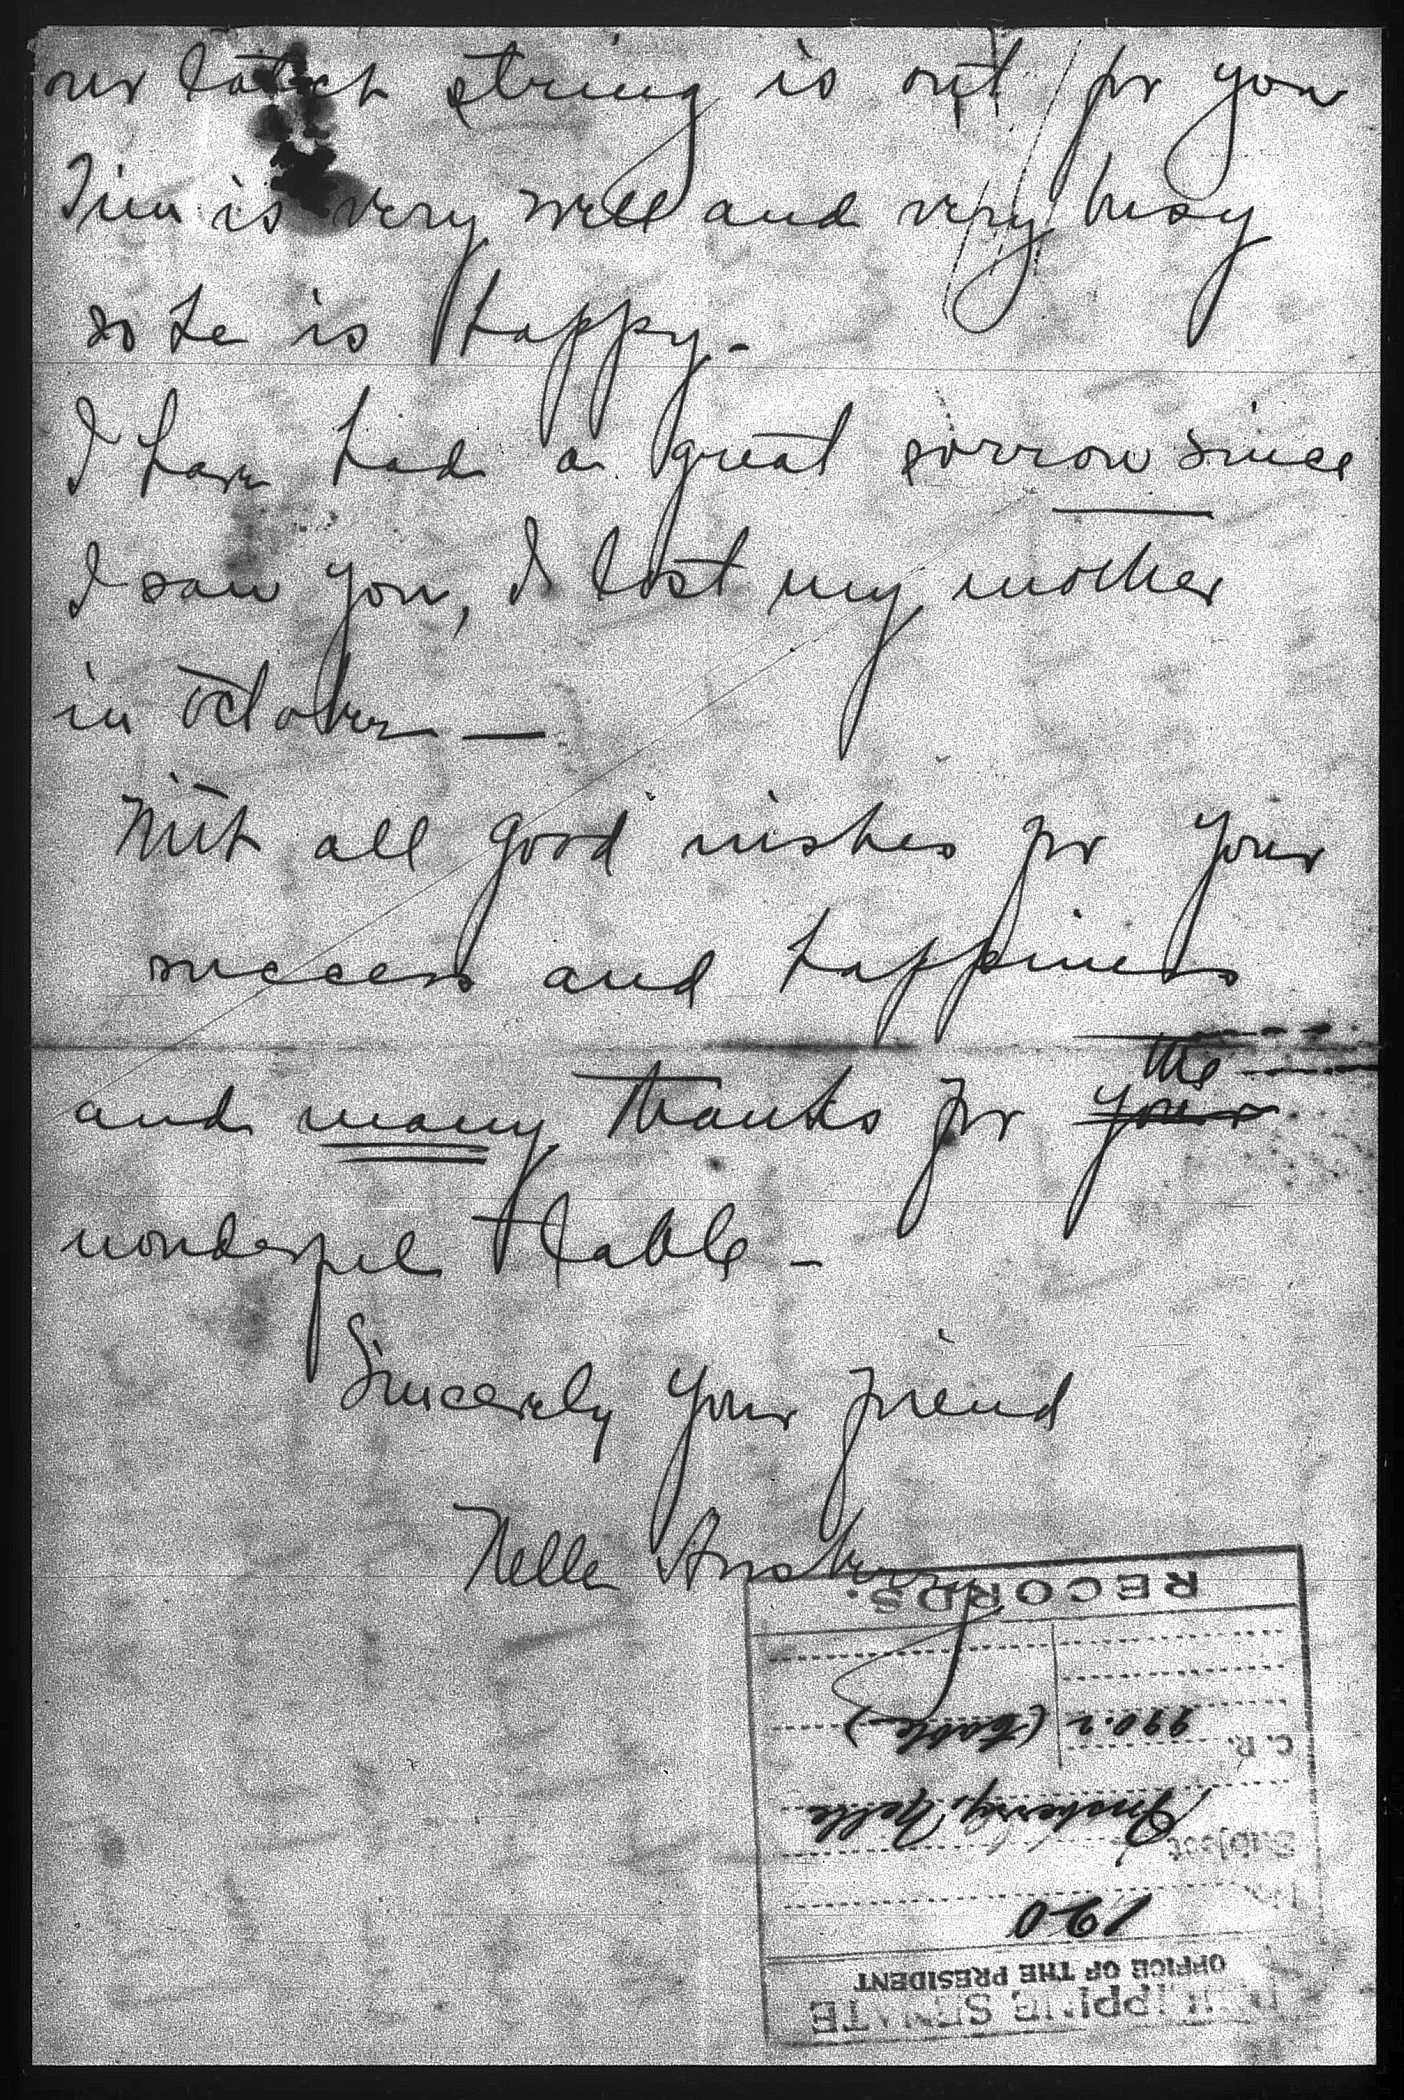 our latch string is out for you
Tim is very well and very busy
so he is happy -
I have had a great sorrow since
I saw you, I lost my mother
in October —
With all good wishes for your
success and happiness
and many thanks for your the
wonderful table -
Sincerely your friend
Nelle Ansberry
PHILIPPINE SENATE
OFFICE OF THE PRESIDENT
No. 120
Subject Ansberry, Nelle
C. R. 990.2 (table)
RECORDS.